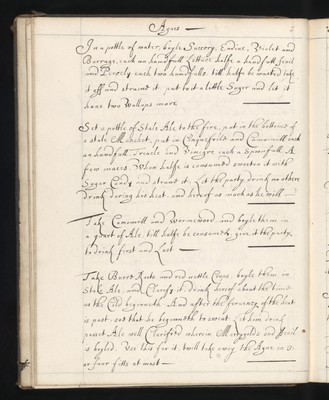 Agues
In a pottle of water, boyle Succory, Endive, Violet and
Borrage, each an handfull, Lettice halfe a handfull, Sorrel
and Percely each two handfulls, till halfe be wasted, take
it off and straine it, put but a little Suger and let it
have two Wallops more
Set a pottle of Stale Ale to the fire, put in the bottome of
a stale Manchet, put in Cinquefoile and Cammomill each
an handfull, Treacle and Vinegar each a spoonfull A
few maces. When halfe is consumed sweeten it with
Suger Candy and straine it. Let the party drink no other
drink during his heat, and hereof as much as he will
Take Camomell and Wormewood and boyle them in
a quart of Ale, till halfe be consumed, give it the party
to drink first and Last
Take Burr Roots and red nettle Crops, boyle them in
Stale Ale, and Clarify it, drink hereof about the time
as the Cold beginneth. And after the fervency of the heat
is past, soe that he beginneth to sweat, Let him drink
posset Ale well Clarifyed wherein Marygolds and
is boyled. Use this for it twill take away the Ague in 3
or four fitts at most